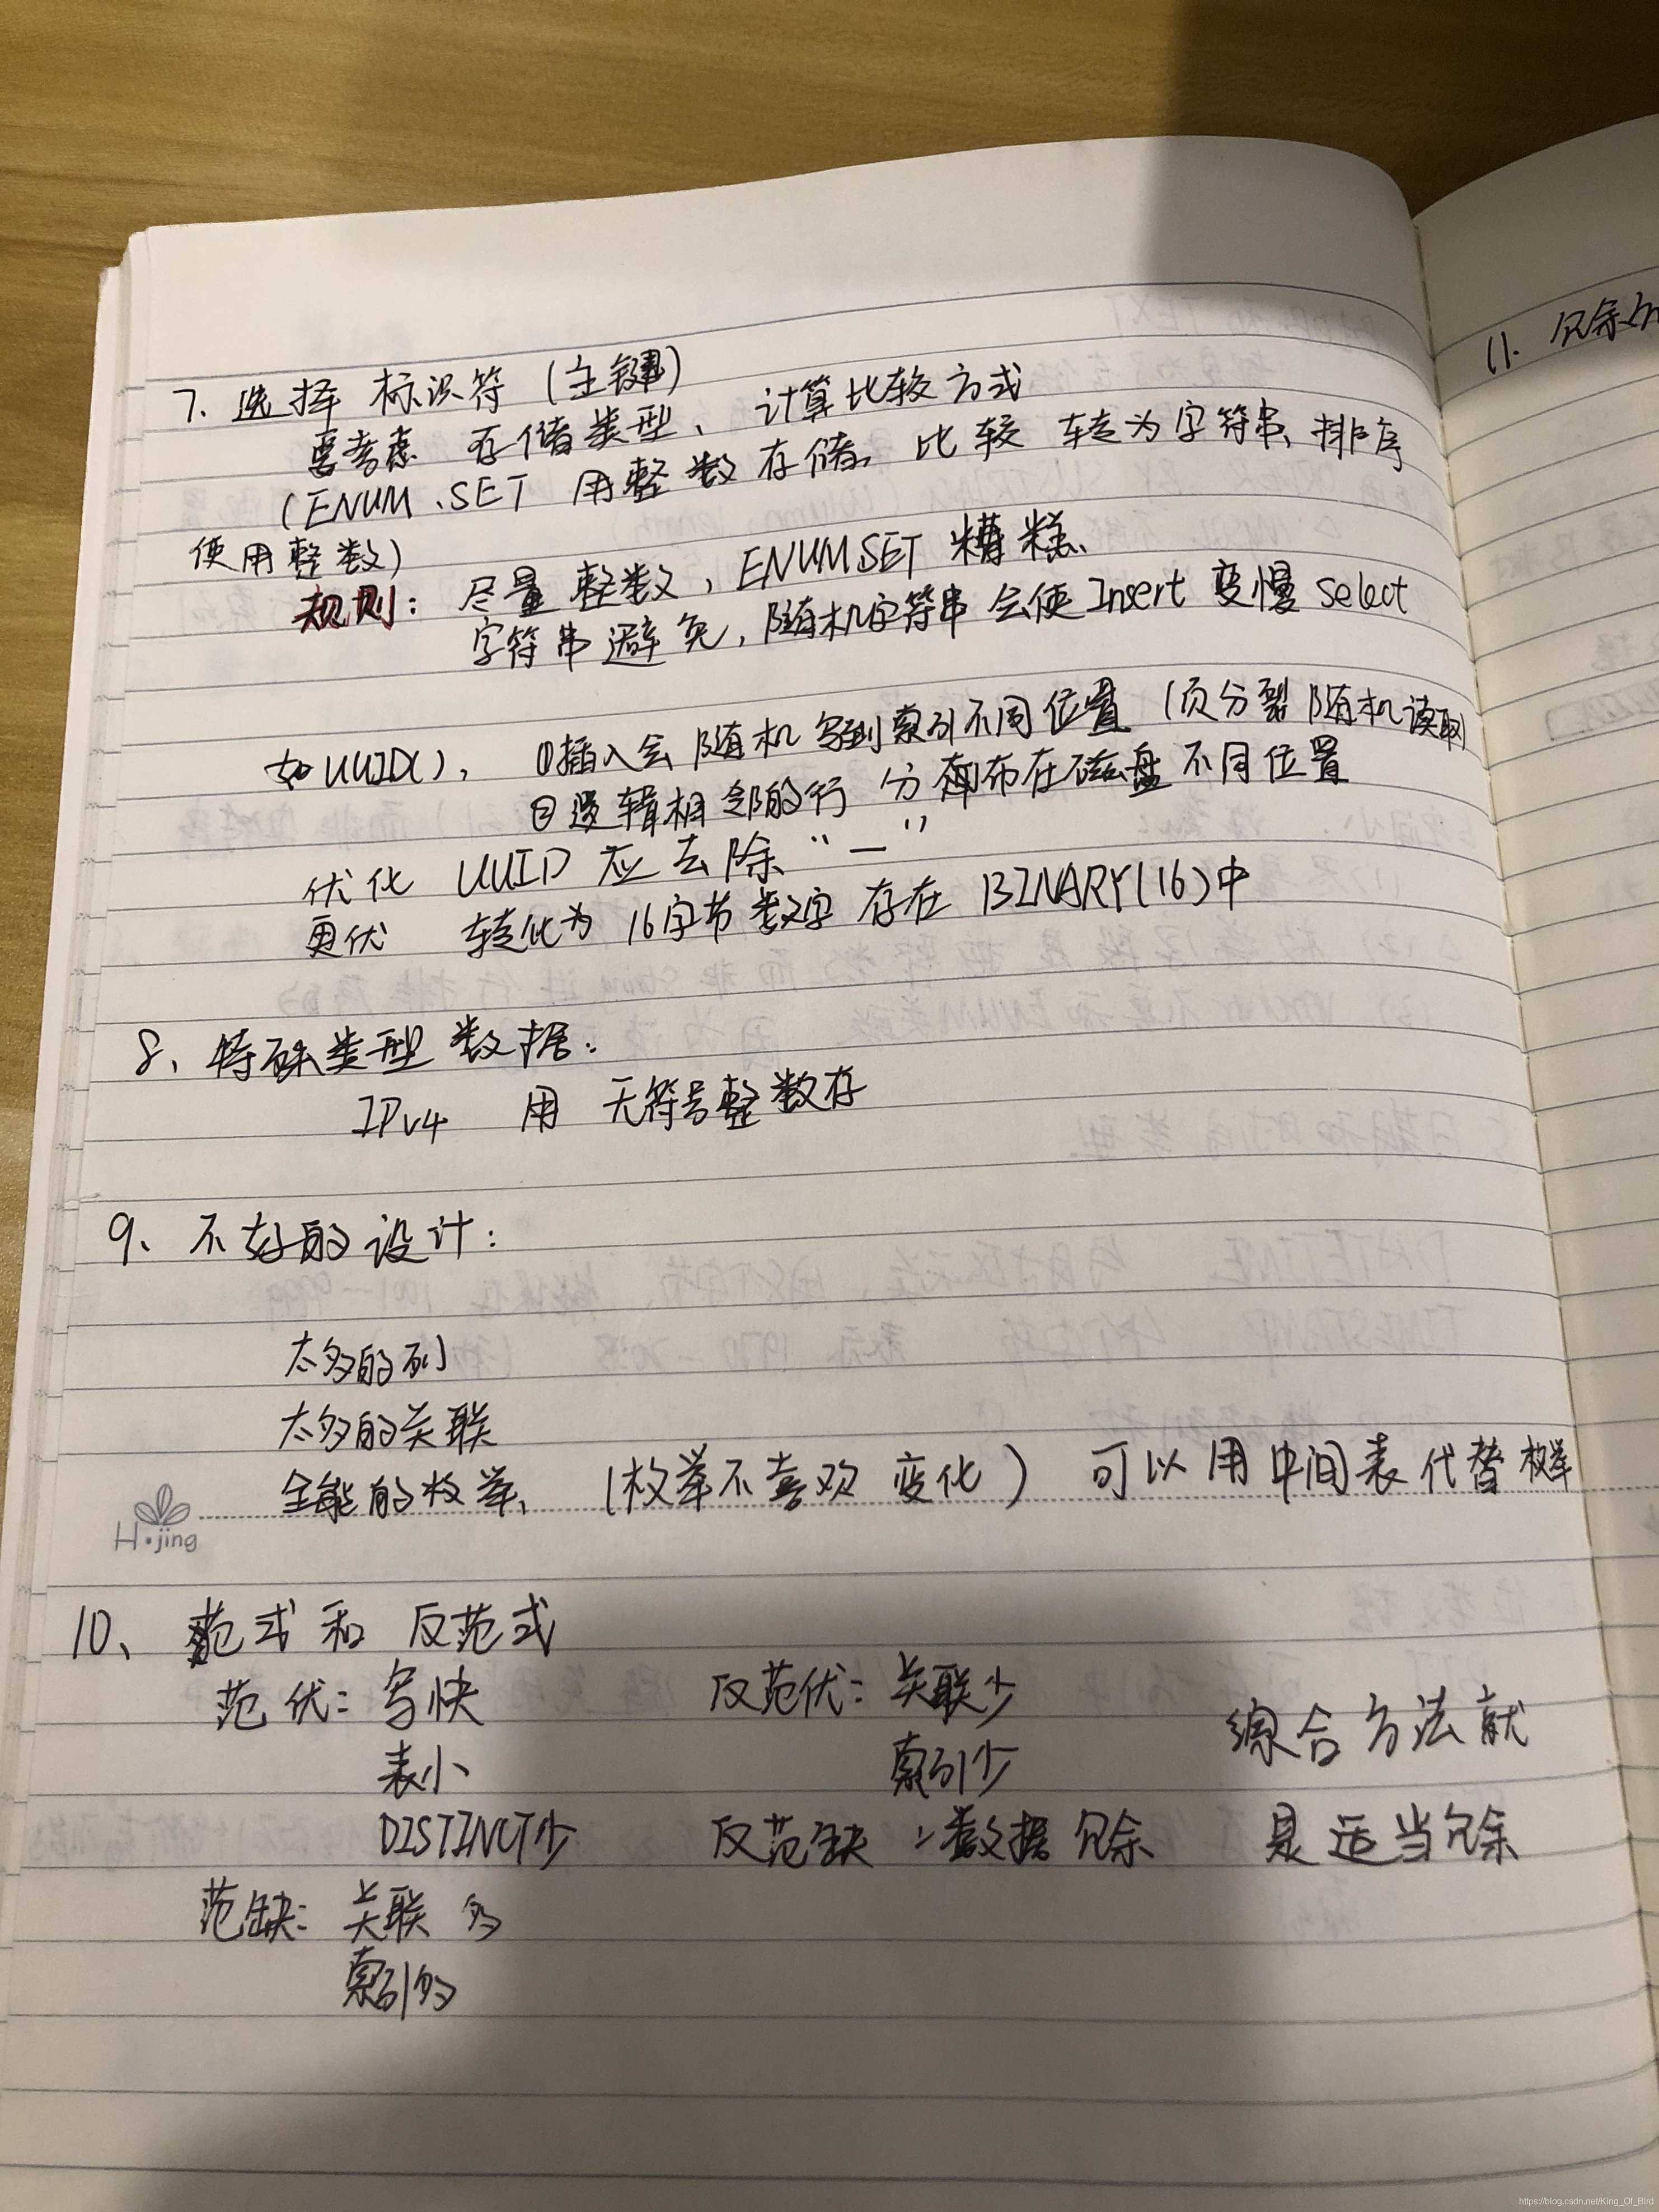 7. 选择 标识符 (主键)
要考虑 存储类型、计算比较方式
(ENUM、SET 用整数存储, 比较 转为字符串、排序
使用整数)
规则: 尽量整数, ENUM SET 糟糕、
字符串避免, 随机字符串会使Insert 变慢 select
如UUID(), ①插入会随机写到索引不同位置 (页分裂 随机读取)
②逻辑相邻的行 分布在磁盘不同位置
优化 UUID 应去除 “—”
更优 转化为 16字节数字 存在 BINARY(16)中
8、特殊类型数据:
IPv4 用 无符号整数存
9、不好的设计:
太多的列
太多的关联
全能的枚举、 (枚举不喜欢变化) 可以用中间表代替枚举
H·jing
10、范式和 反范式
范优: 写快 反范优: 关联少 综合方法就
表小 索引少
DISTINCT少 反范缺: 数据冗余 是适当冗余
范缺: 关联多
索引多
11. 冗余
https://blog.csdn.net/King_Of_Bird